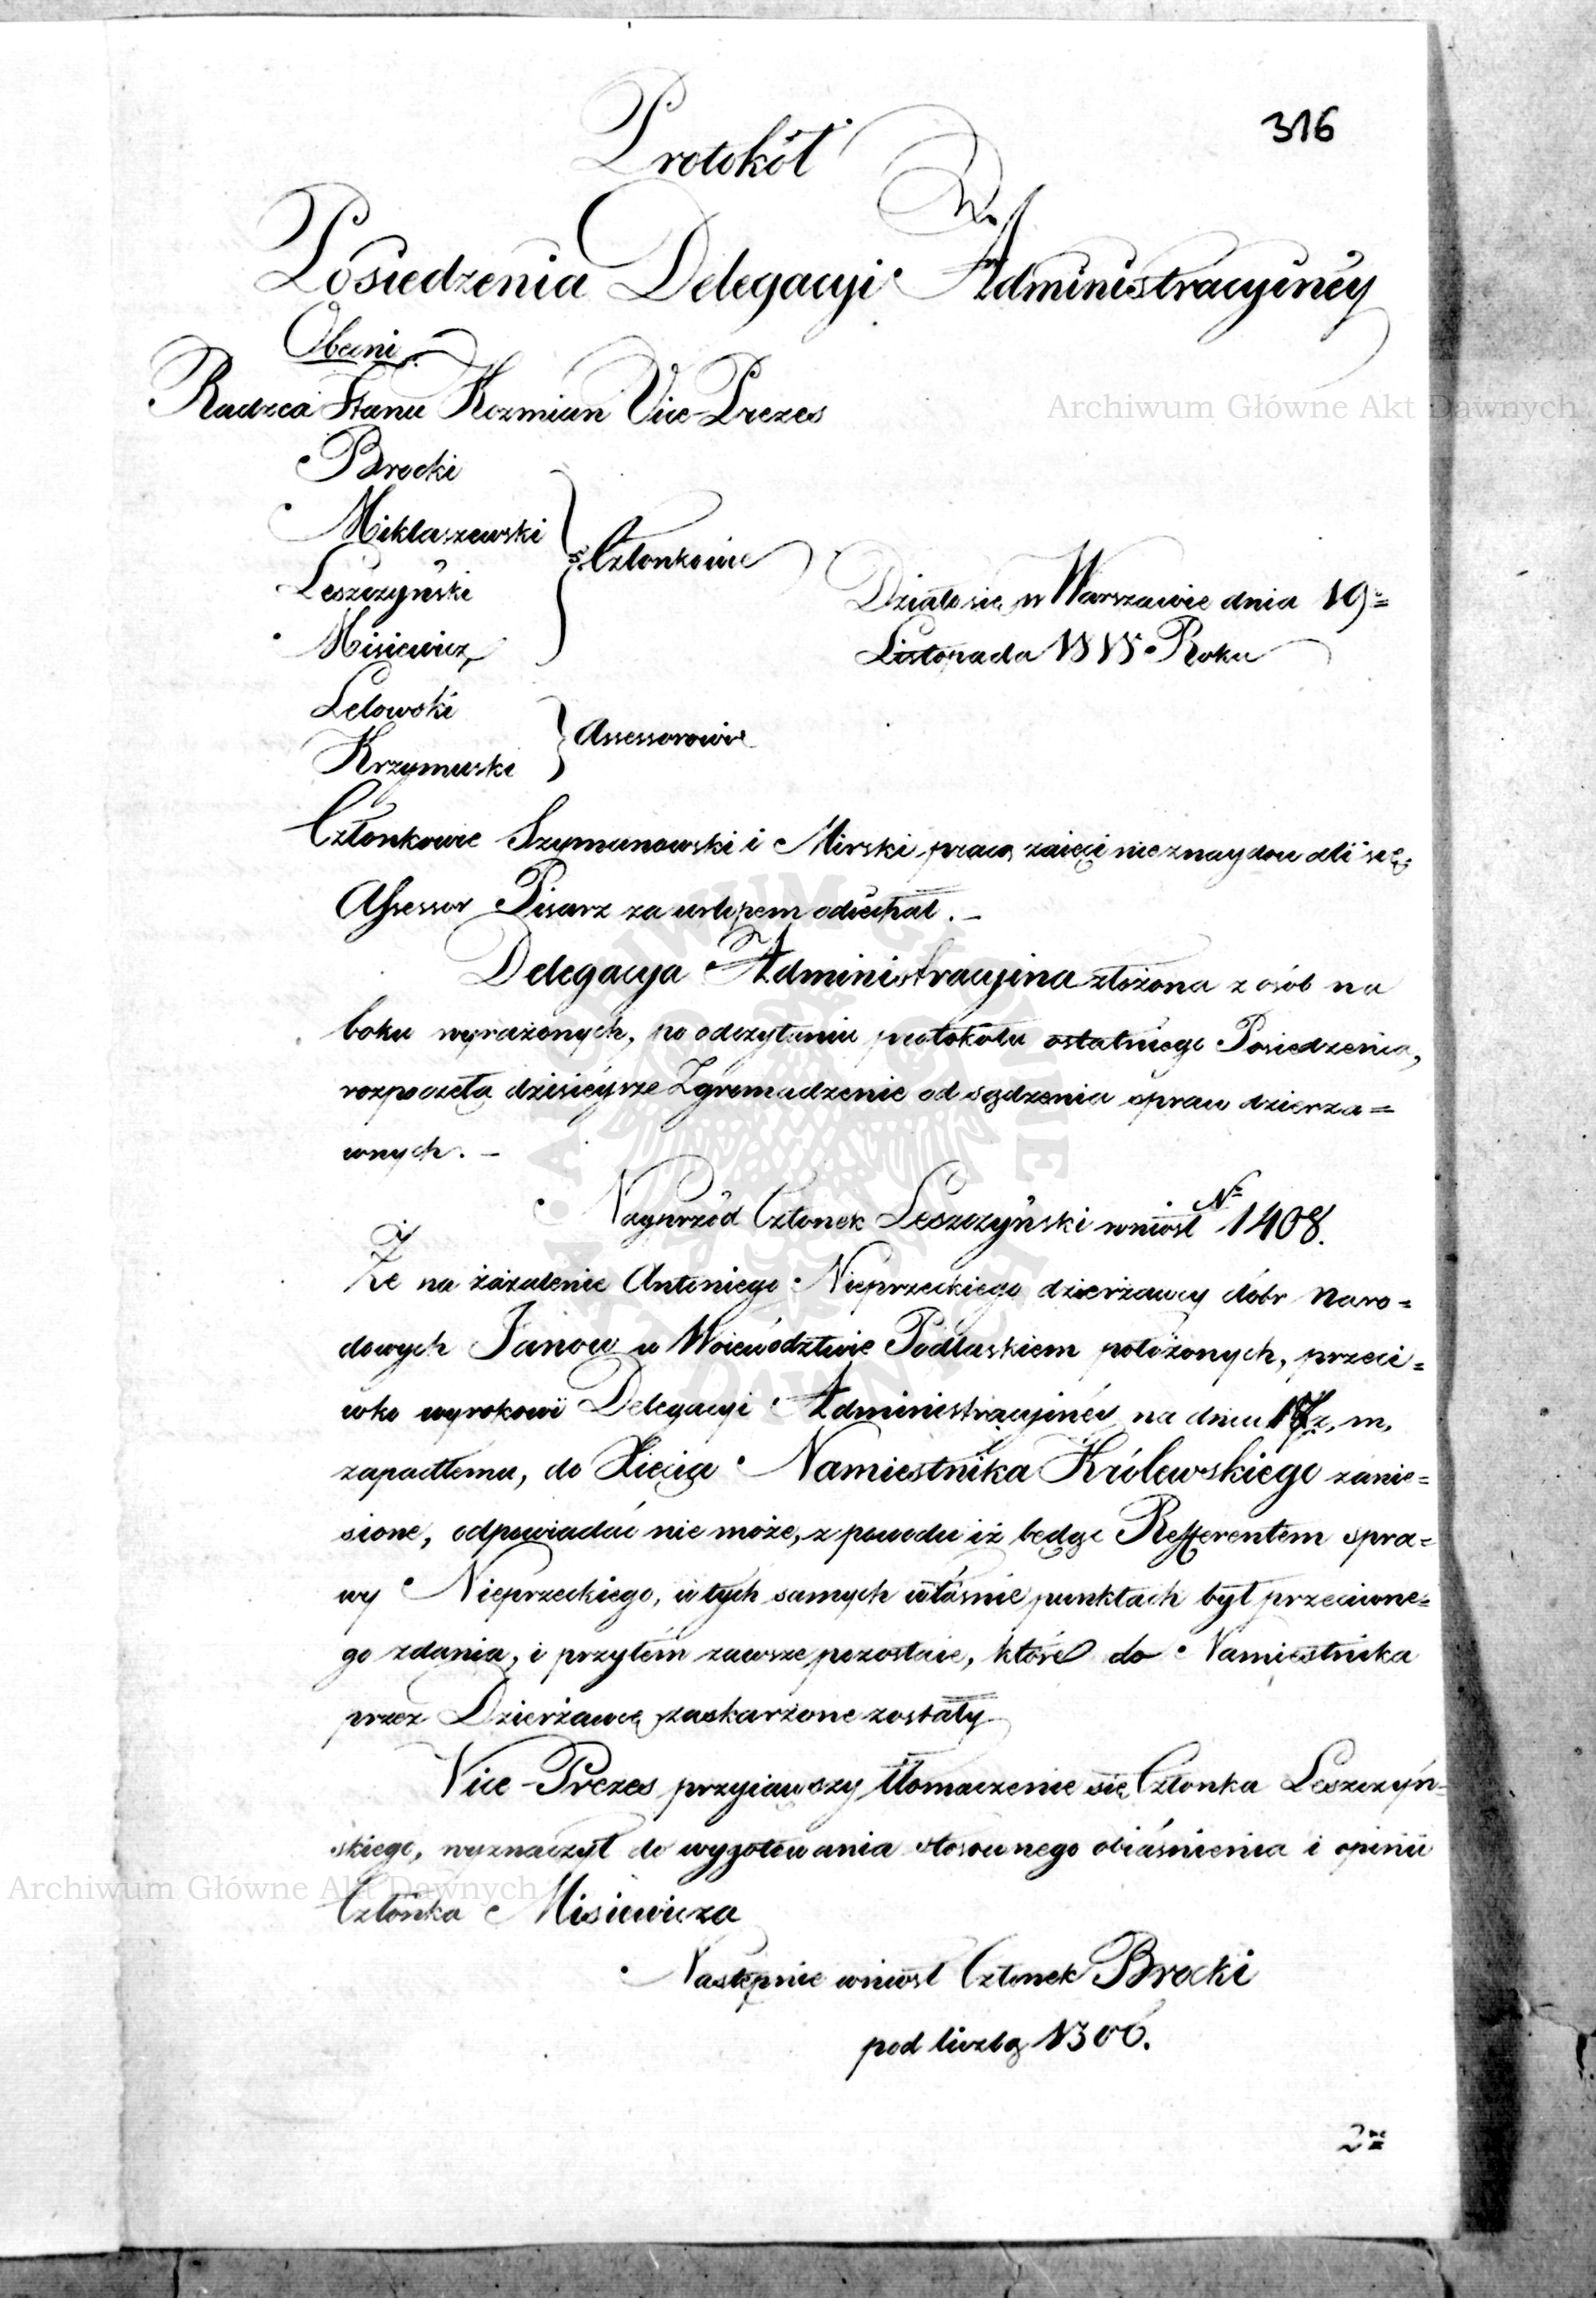 316
Protokół
Posiedzenia Delegacyi Administracyinéy
Obecni
Radzca Stanu Kozmian Vice-Prezes
Archiwum Główne Akt Dawnych
Brocki
Miklaszewski
Członkowie
Leszczyński
Działo się w Warszawie dnia 19=
Misiewicz
Listopada 1818 Roku
Lelowski
Assessorowie
Krzymuski
Członkowie Szymanowski i Mirski pracą zaięci nie znaydowali się,
Assessor Pisarz za urlopem odiechał. –
Delegacya Administracyina złożona z osób na
boku wyrażonych, po odczytaniu protokułu ostatniego Posiedzenia,
rozpoczęła dzisiéysze Zgromadzenie od sądzenia spraw dzierża=
wnych. –
Nayprzód Członek Leszczyński wniosł No 1408.
Że na zażalenie Antoniego Nieprzeckiego dzierżawcy dóbr Naro=
dowych Janow w Woiewództwie Podlaskiem położonych, przeci=
wko wyrokowi Delegacyi Administracyinéy na dniu 17 z. m.
zapadłemu, do Xięcia Namiestnika Królewskiego zanie=
sione, odpowiadać nie może, z powodu iż będąc Refferentem spra=
wy Nieprzeckiego, w tych samych właśnie punktach był przeciwne=
go zdania, i przytém zawsze pozostaie, które do Namiestnika
przez Dzierżawcę zaskarżone zostały
Vice-Prezes przyiąwszy tłomaczenie się Członka Leszczyń=
skiego, wyznaczył do wygotowania stosownego obiaśnienia i opinii
Archiwum Główne Akt Dawnych
Członka Misiewicza
Następnie wniosł Członek Brocki
pod liczbą 1306.